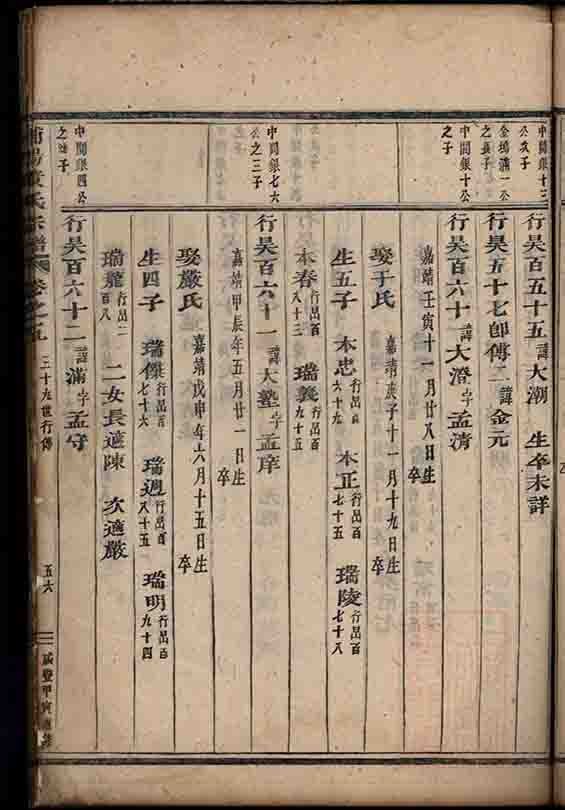 中開銀十三
公次子
行昊百五十五 諱大潮 生卒未詳
金塢滿一公
之長子
行昊五十七卽傅二 諱金元
中開銀十公
之子
行昊百六十 諱大澄字孟清
嘉靖壬寅十一月廿八日生
卒
娶于氏 嘉靖庚子十一月十九日生
卒
生五子 木忠行昌百六十九 木正行昌百七十五 瑞陵行昌百七十八
本春行昌百八十三 瑞義行昌百九十五
中開銀七六
公之三子
行昊百六十一 諱大塾字孟庠
嘉靖甲辰年五月廿一日生
卒
娶嚴氏 嘉靖戊申年六月十五日生
卒
生四子 瑞傑行昌百七十六 瑞週行昌百八十五 瑞明行昌百九十四
瑞龍行昌二百八 二女長適陳 次適嚴
中開銀四公
之子
行昊百六十二 諱滿字孟守
氏宗譜 卷之五 二十九世行傳 五六 咸豐甲寅重修